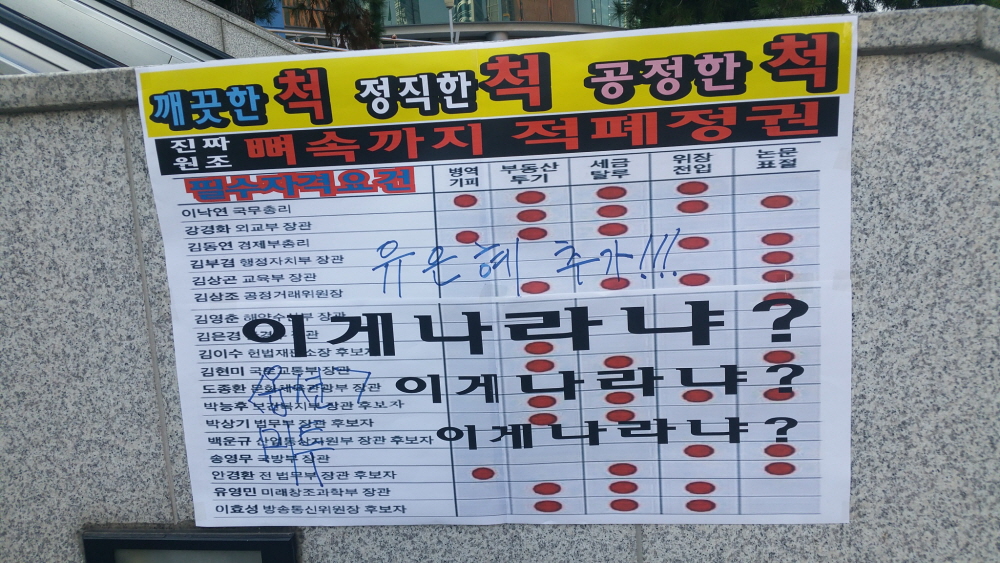 깨끗한 척 정직한 척 공정한 척
진짜 원조 뼈속까지 적폐정권
필수자격요건 병역기피 부동산투기 세금탈루 위장전입 논문표절
이낙연 국무총리
강경화 외교부 장관
김동연 경제부총리
김부겸 행정자치부 장관
유은혜 추가!!!
김상곤 교육부 장관
김상조 공정거래위원장
김영춘 해양수산부 장관
이게나라냐?
김은경 장관
김이수 헌법재판소장 후보자
김현미 국토교통부 장관
도종환 문화체육관광부 장관
이게나라냐?
박능후 보건복지부 장관 후보자
박상기 법무부 장관 후보자
백운규 산업통상자원부 장관 후보자
이게나라냐?
송영무 국방부 장관
안경환 전 법무부 장관 후보자
유영민 미래창조과학부 장관
이효성 방송통신위원장 후보자